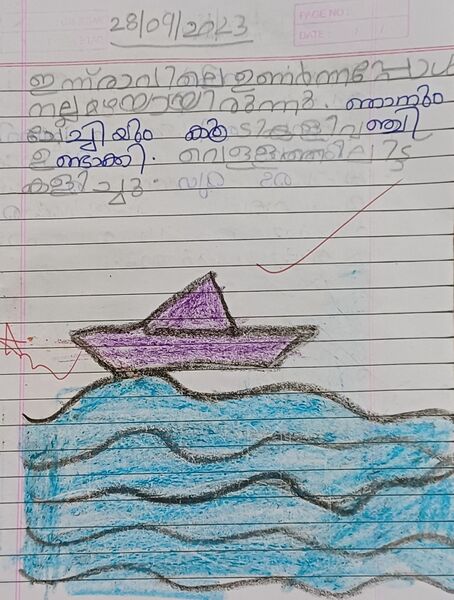 PAGE NO.:
DATE: / /
28/09/2023
ഇന്ന് രാവിലെ ഉണർന്നപ്പോൾ
നല്ല മഴയായിരുന്നു. ഞാനും
ചേച്ചിയും കൂടി കളിവഞ്ചി
ഉണ്ടാക്കി. വെള്ളത്തിലിട്ടു
കളിച്ചു.